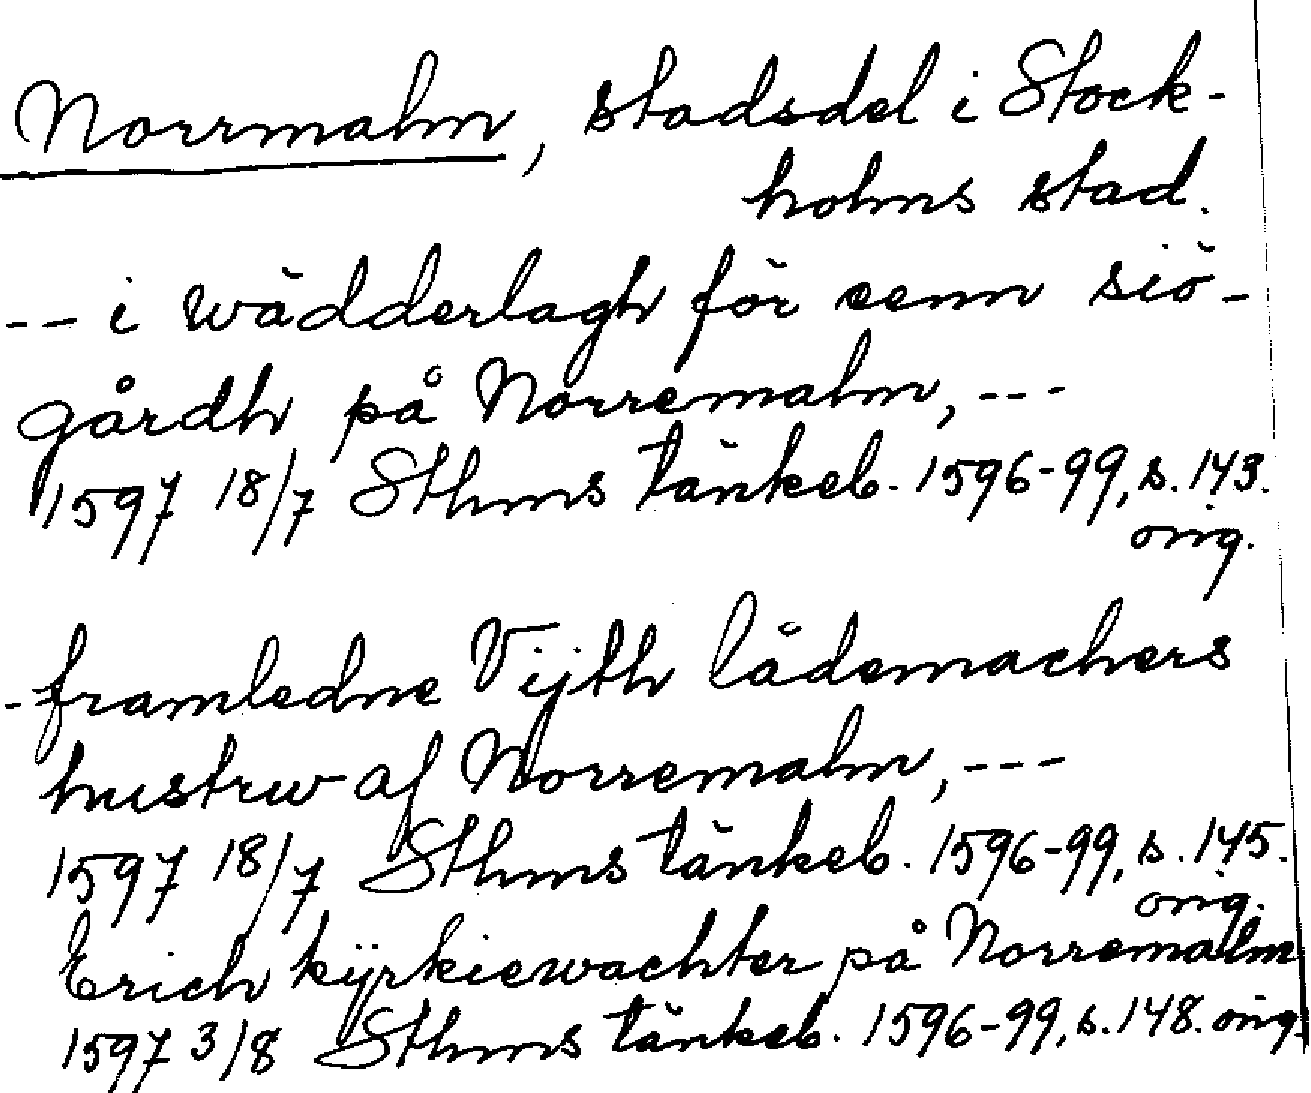 Norrmalm, stadsdel i Stock-
holms stad.
-- i wädderlagh för eenn siö-
gårdh på Norremalm, ---
1597 18/7 Sthms tänkeb. 1596-99, s. 143.
orig.
- framledne Vijth lådemachers
hustrw af Norremalm, ---
1597 18/7 Sthms tänkeb. 1596-99, s. 145.
orig.
Erich kÿrkiewachter på Norremalm
1597 3/8 Sthms tänkeb. 1596-99, s. 148. orig.